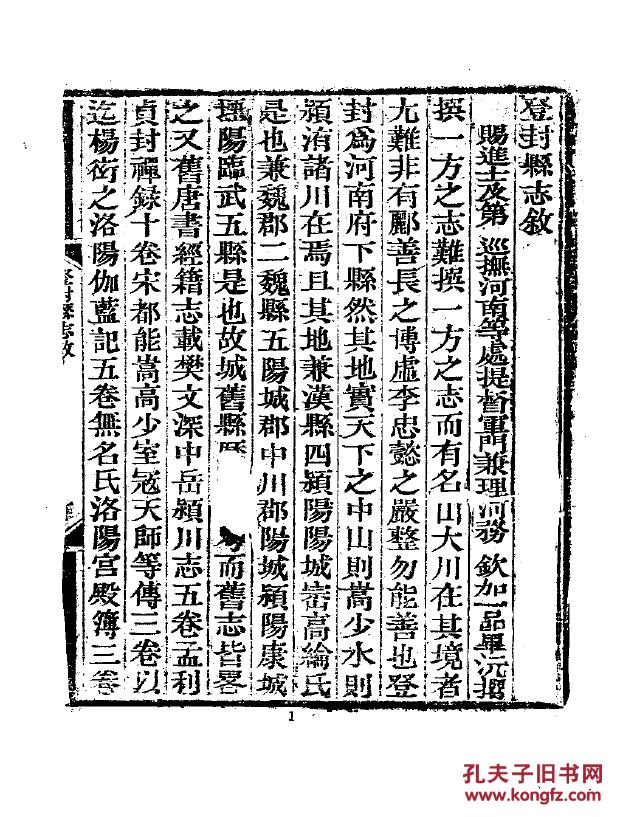 登封縣志敘
賜進士及第 巡撫河南等處提督軍門兼理河務 欽加一品畢沅撰
撰一方之志難撰一方之志而有名山大川在其境者
尤難非有酈善長之博虛李忠懿之嚴整勿能善也登
封爲河南府下縣然其地實天下之中山則嵩少水則
潁洧諸川在焉且其地兼漢縣四潁陽陽城崈高綸氏
是也兼魏郡二魏縣五陽城郡中川郡陽城潁陽康城
堙陽臨武五縣是也故城舊縣 而舊志皆畧
之又舊唐書經籍志載樊文深中岳潁川志五卷孟利
貞封禪錄十卷宋都能嵩高少室冦天師等傳三卷以
迄楊衒之洛陽伽藍記五卷無名氏洛陽宮殿簿三卷
登封縣志敘
1
孔夫子旧书网
www.kongfz.com